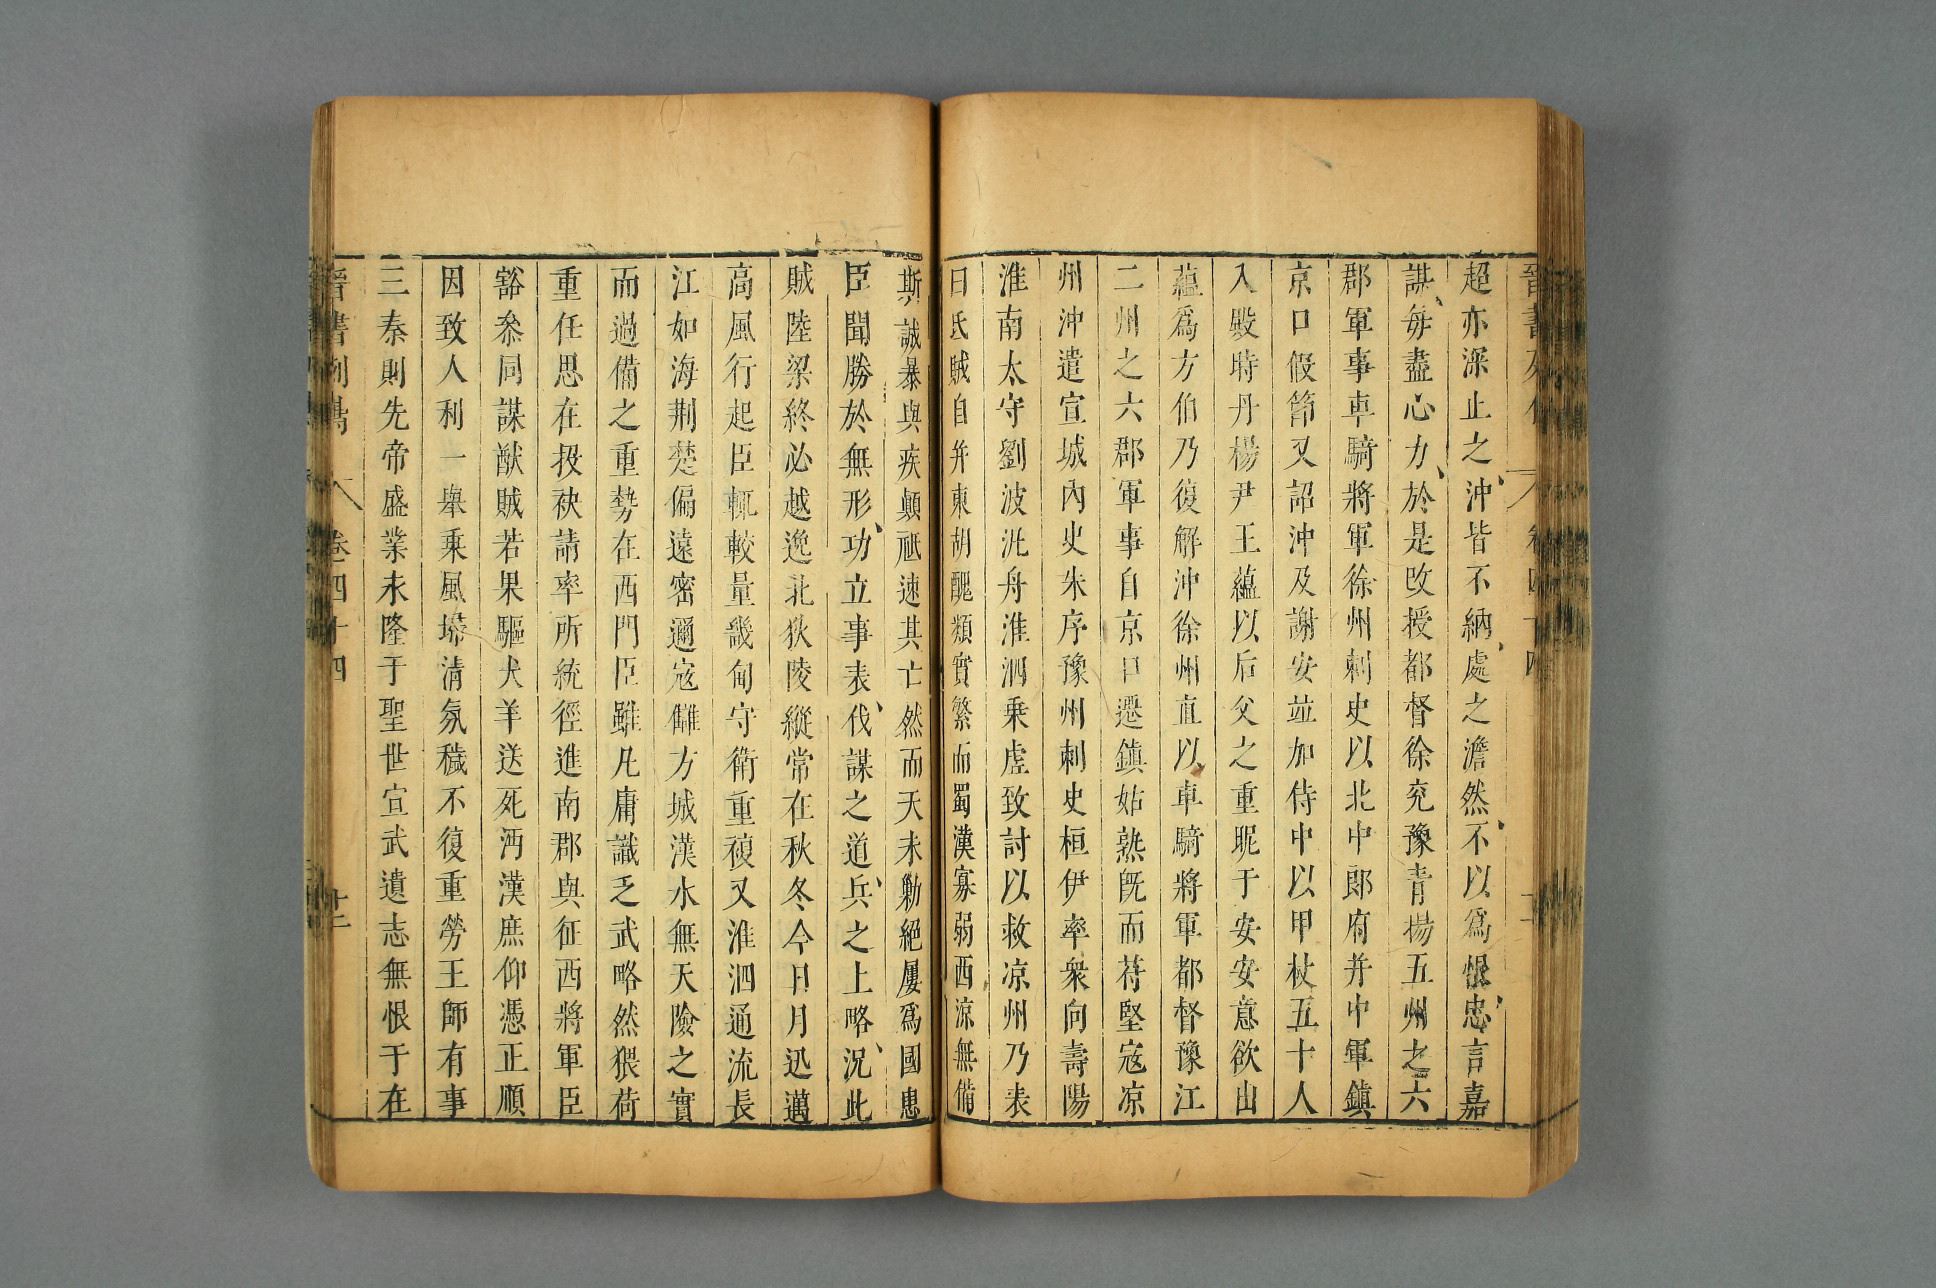 晉書列傳 卷四十四
超亦深止之沖皆不納處之澹然不以爲恨忠言嘉
謀每盡心力於是改授都督徐兖豫青揚五州之六
郡軍事車騎將軍徐州刺史以北中郎府并中軍鎮
京口假節又詔沖及謝安並加侍中以甲杖五十人
入殿時丹楊尹王蘊以后父之重昵于安安意欲出
蘊爲方伯乃復解沖徐州直以車騎將軍都督豫江
二州之六郡軍事自京口遷鎮姑熟旣而苻堅寇凉
州沖遣宣城內史朱序豫州刺史桓伊率衆向壽陽
淮南太守劉波汎舟淮泗乗虛致討以救凉州乃表
曰氐賊自并東胡醜類實繁而蜀漢寡弱西涼無備
斯誠暴與疾顛祗速其亡然而天未勦絕屢爲國患
臣聞勝於無形功立事表伐謀之道兵之上略况此
賊陸梁終必越逸北狄陵縱常在秋冬今日月迅邁
高風行起臣輒較量畿甸守衛重複又淮泗通流長
江如海荆楚偏遠密邇寇讎方城漢水無天險之實
而過備之重勢在西門臣雖凡庸識乏武略然猥荷
重任思在投袂請率所統徑進南郡與征西將軍臣
豁叅同謀猷賊若果驅犬羊送死沔漢庶仰憑正順
因致人利一舉乗風埽淸氛穢不復重勞王師有事
三秦則先帝盛業永隆于聖世宣武遺志無恨于在
晉書列傳 卷四十四 廿二